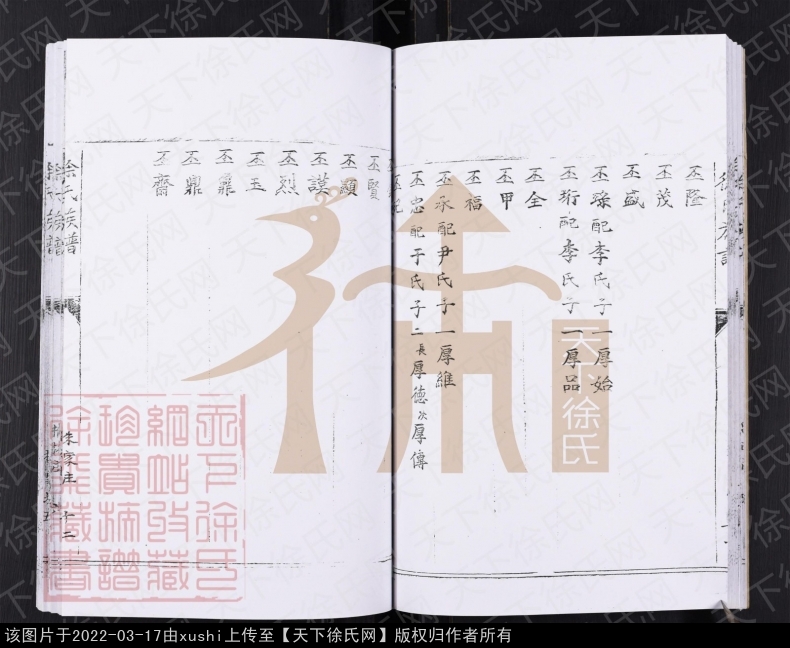 丕隆
丕茂
丕璟配李氏子一厚始
丕盛
丕珩配李氏子一厚品
丕全
丕甲
丕福
丕承配尹氏子一厚維
丕忠配于氏子二長厚德次厚傳
丕賢
丕顯
丕謨
丕烈
丕玉
丕鼐
丕鼎
丕齋
徐氏族譜
朱家庄
十二
天下徐氏
天下徐氏
網站收藏
珍貴梗譜
徐張藏書
该图片于2022-03-17由xushi上传至【天下徐氏网】版权归作者所有